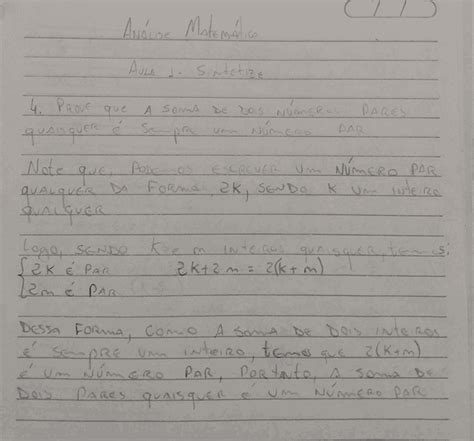 Análise Matemática
Aula 1. Sintetize
4. Prove que a soma de dois números pares
quaisquer é sempre um número par
Note que, podemos escrever um número par
qualquer da forma 2k, sendo k um inteiro
qualquer
Logo, sendo k e m inteiros quaisquer, temos:
{2k é par 2k+2m = 2(k+m)
{2m é par
Dessa forma, como a soma de dois inteiros
é sempre um inteiro, temos que 2(k+m)
é um número par, portanto, a soma de
dois pares quaisquer é um número par